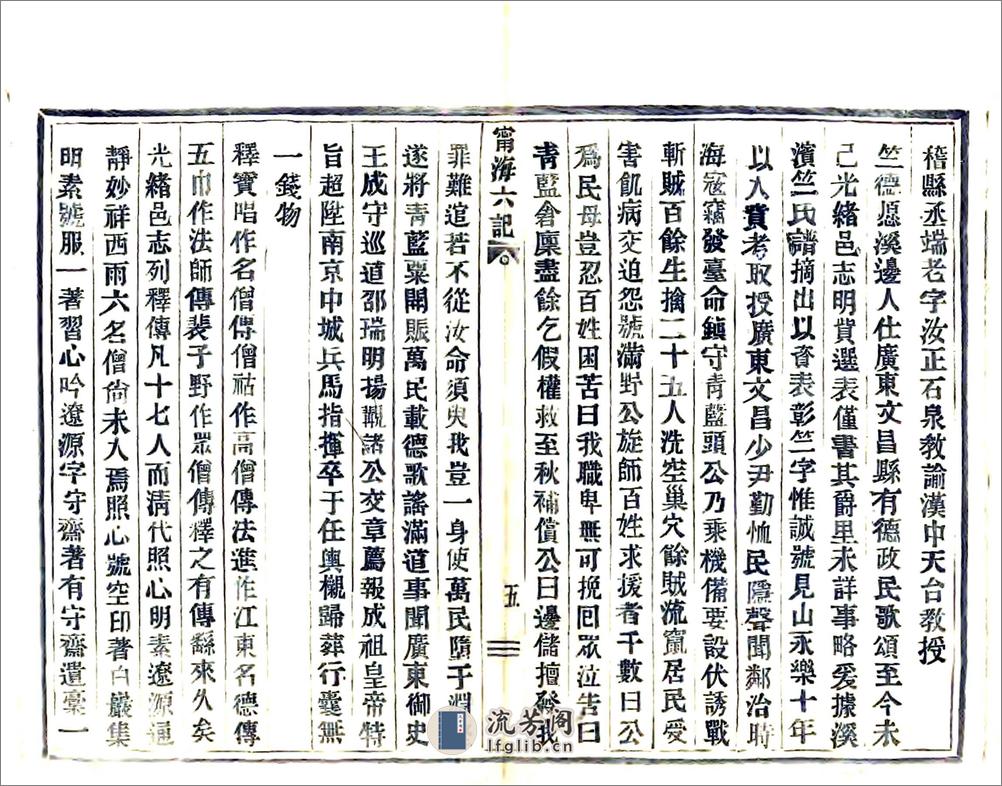 稽縣丞端老字汝正石泉教諭漢中天台教授
竺德愿溪邊人仕廣東文昌縣有德政民歌頌至今未
己光緒邑志明貲選表僅書其爵里未詳事略爰據溪
濱竺氏譜摘出以資表彰竺字惟誠號見山永樂十年
以入貲考取授廣東文昌少尹勤恤民隱聲聞鄰治時
海寇竊發臺命鎮守青藍頭公乃乘機備要設伏誘戰
斬賊百餘生擒二十五人洗空巢穴餘賊流竄居民受
害飢病交迫怨號滿野公旋師百姓求援者千數曰公
為民母豈忍百姓困苦曰我職卑無可挽回眾泣告曰
青藍倉廩盡餘乞假權救至秋補償公曰邊儲擅發我
甯海六記
五
罪難逭若不從汝命須臾我豈一身使萬民墮于淵
遂將青藍粟開賑萬民載德歌謠滿道事聞廣東御史
王成守巡道邵瑞明揚覵諸公交章薦報成祖皇帝特
旨超陞南京中城兵馬指揮卒于任輿櫬歸葬行囊無
一錢物
釋寶唱作名僧傳僧祜作高僧傳法進作江東名德傳
五巾作法師傳裴子野作眾僧傳釋之有傳繇來久矣
光緒邑志列釋傳凡十七人而清代照心明素遼源通
靜妙祥西雨六名僧尙未入焉照心號空印著白巖集
明素號服一著習心吟遼源字守齋著有守齋遺稾一
流芳阁
lfglib.cn